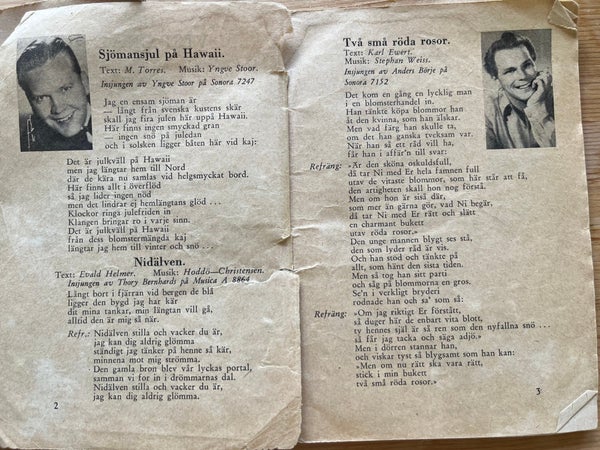 Sjömansjul på Hawaii.
Text: M. Torres. Musik: Yngve Stoor.
Insjungen av Yngve Stoor på Sonora 7247
Jag en ensam sjöman är
— långt från svenska kustens skär
skall jag fira julen här uppå Hawaii.
Här finns ingen smyckad gran
— ingen snö på juledan
och i solsken ligger båten här vid kaj:
Det är julkväll på Hawaii
men jag längtar hem till Nord
där de kära nu samlas vid helgsmyckat bord.
Här finns allt i överflöd
så jag lider ingen nöd
men det lindrar ej hemlängtans glöd . . .
Klockor ringa julefriden in
Klangen bringar ro i varje sinn.
Det är julkväll på Hawaii
från dess blomstermängda kaj
längtar jag hem till vinter och snö . . .
Nidälven.
Text: Evald Helmer. Musik: Hoddö—Christensen.
Insjungen av Thory Bernhards på Musica A 8864
Långt bort i fjärran vid bergen de blå
ligger den bygd jag har kär
dit mina tankar, min längtan vill gå,
alltid den är mig så när.
Refr.: Nidälven stilla och vacker du är,
jag kan dig aldrig glömma
ständigt jag tänker på henne så kär,
minnena mot mig strömma.
Den gamla bron blev vår lyckas portal,
samman vi for in i drömmarnas dal.
Nidälven stilla och vacker du är,
jag kan dig aldrig glömma.
2
Två små röda rosor.
Text: Karl Ewert.
Musik: Stephan Weiss.
Insjungen av Anders Börje på
Sonora 7152
Det kom en gång en lycklig man
i en blomsterhandel in.
Han tänkte köpa blommor han
åt den kvinna, som han älskar.
Men vad färg han skulle ta,
om det han ganska tveksam var.
När han så ett råd vill ha,
får han i affär'n till svar:
Refräng: »Är den sköna oskuldsfull,
då tar Ni med Er hela famnen full
utav de vitaste blommor, som här står att få,
den artigheten skall hon nog förstå.
Men om hon är siså där,
som mer än gärna gör, vad Ni begär,
då tar Ni med Er rätt och slätt
en charmant bukett
utav röda rosor.»
Den unge mannen blygt ses stå,
den som lyder råd är vis.
Och han stod och tänkte på
allt, som hänt den sista tiden.
Men så tog han mod till sig,
och såg på blommorna en gros.
Se'n i verkligt bryderi
rodnade han och sa' som så:
Refräng: »Om jag riktigt Er förstått,
så duger här de enbart vita blott,
ty hennes själ är så ren som den nyfallna snö . . .
så får jag tacka och säga adjö.»
Men i dörren stannar han,
och viskar tyst så blygsamt som han kan:
»Men om nu rätt ska vara rätt,
stick i min bukett
två små röda rosor.»
3